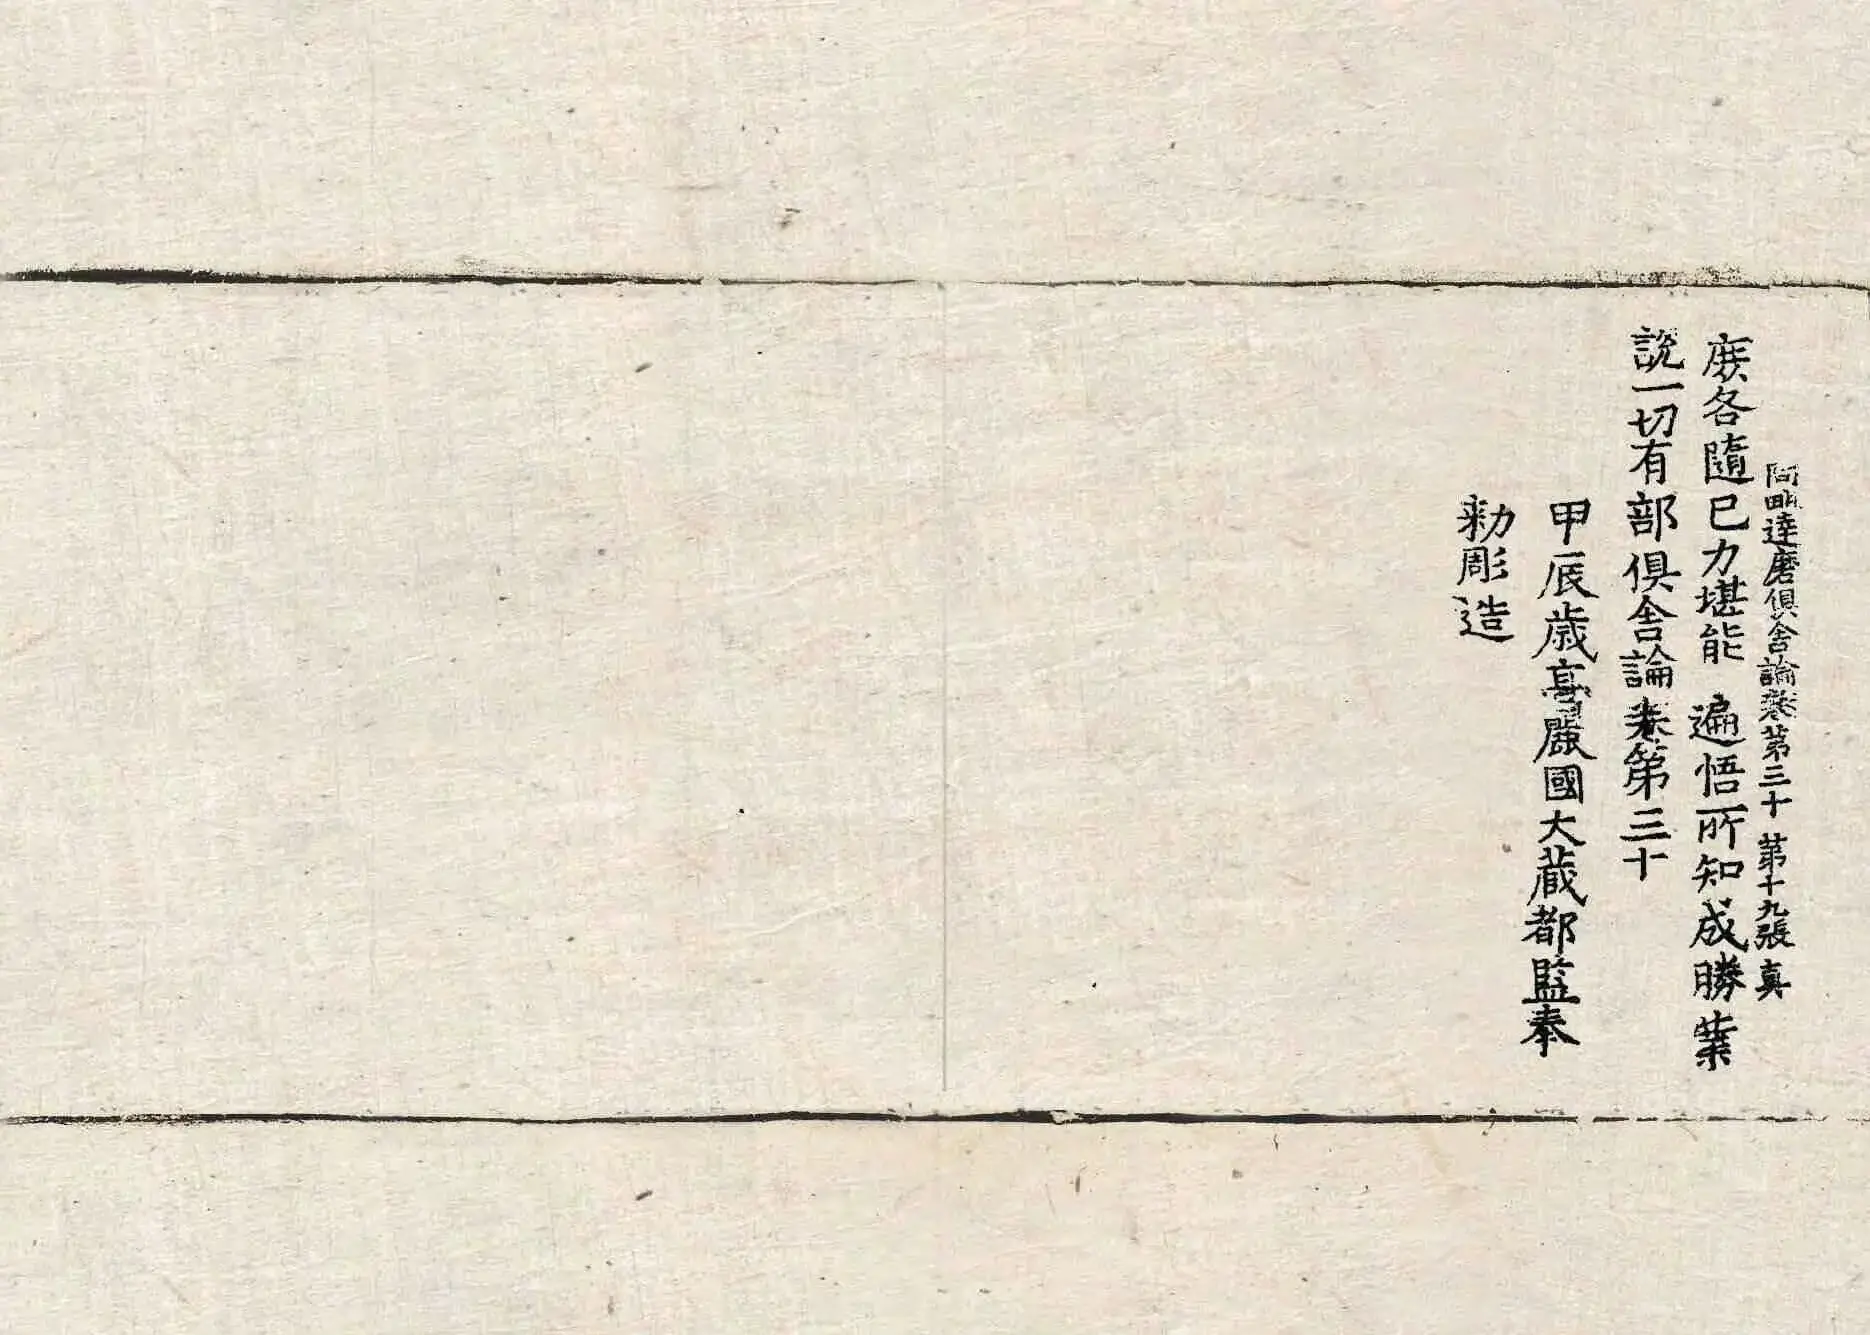 阿毗達磨俱舍論卷第三十 第十九張 真
庻各隨已力堪能 遍悟所知成勝業
說一切有部俱舍論卷第三十
甲辰歳高麗國大藏都監奉
勑彫造